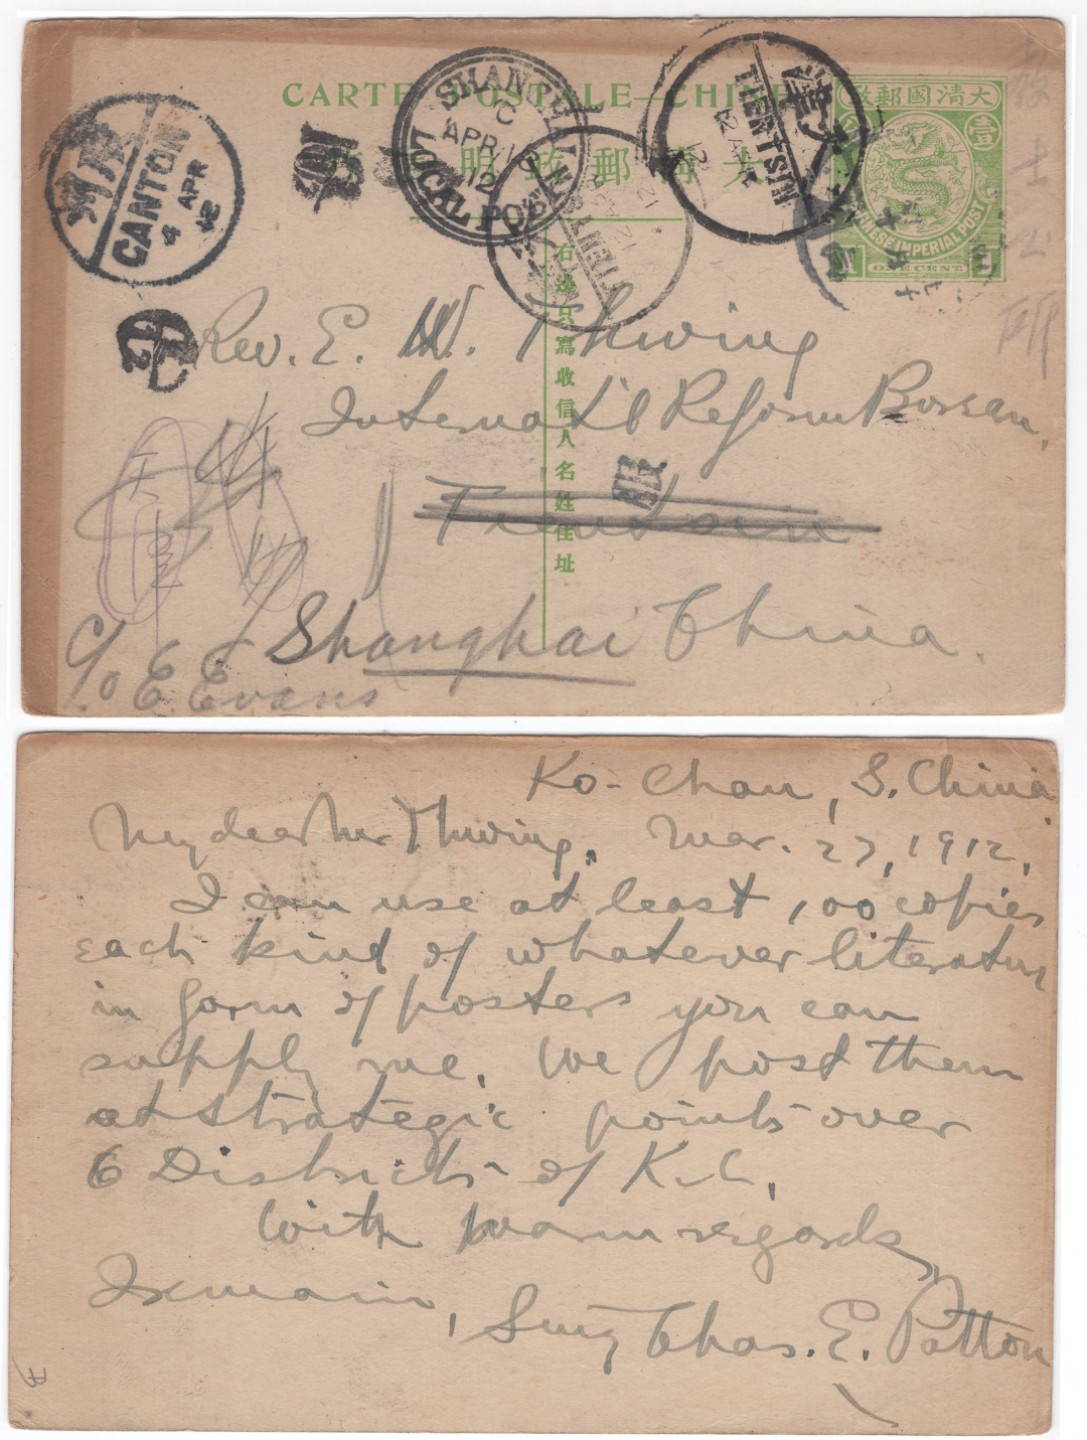 CARTE POSTALE—CHINE
大清郵政明
大清國郵政
壹
CHINESE IMPERIAL POST
ONE CENT
右邊只寫收信人名姓住址
廣州
CANTON
4 APR
12
SHANGHAI
C
APR 12
12
LOCAL POST
TIENTSIN
天津
TIENTSIN
12
Rev. E. W. Thwing
Internat'l Reform Bureau,
Tientsin
Shanghai China.
c/o E. Evans
天津
Ko-Chau, S. China
My dear Mr Thwing, Mar. 27, 1912,
I can use at least 100 copies
each kind of whatever literature
in form of posters you can
supply me. We post them
at strategic points over
6 Districts of K.C.
With warm regards,
I remain,
Sincy Chas. E. Patton